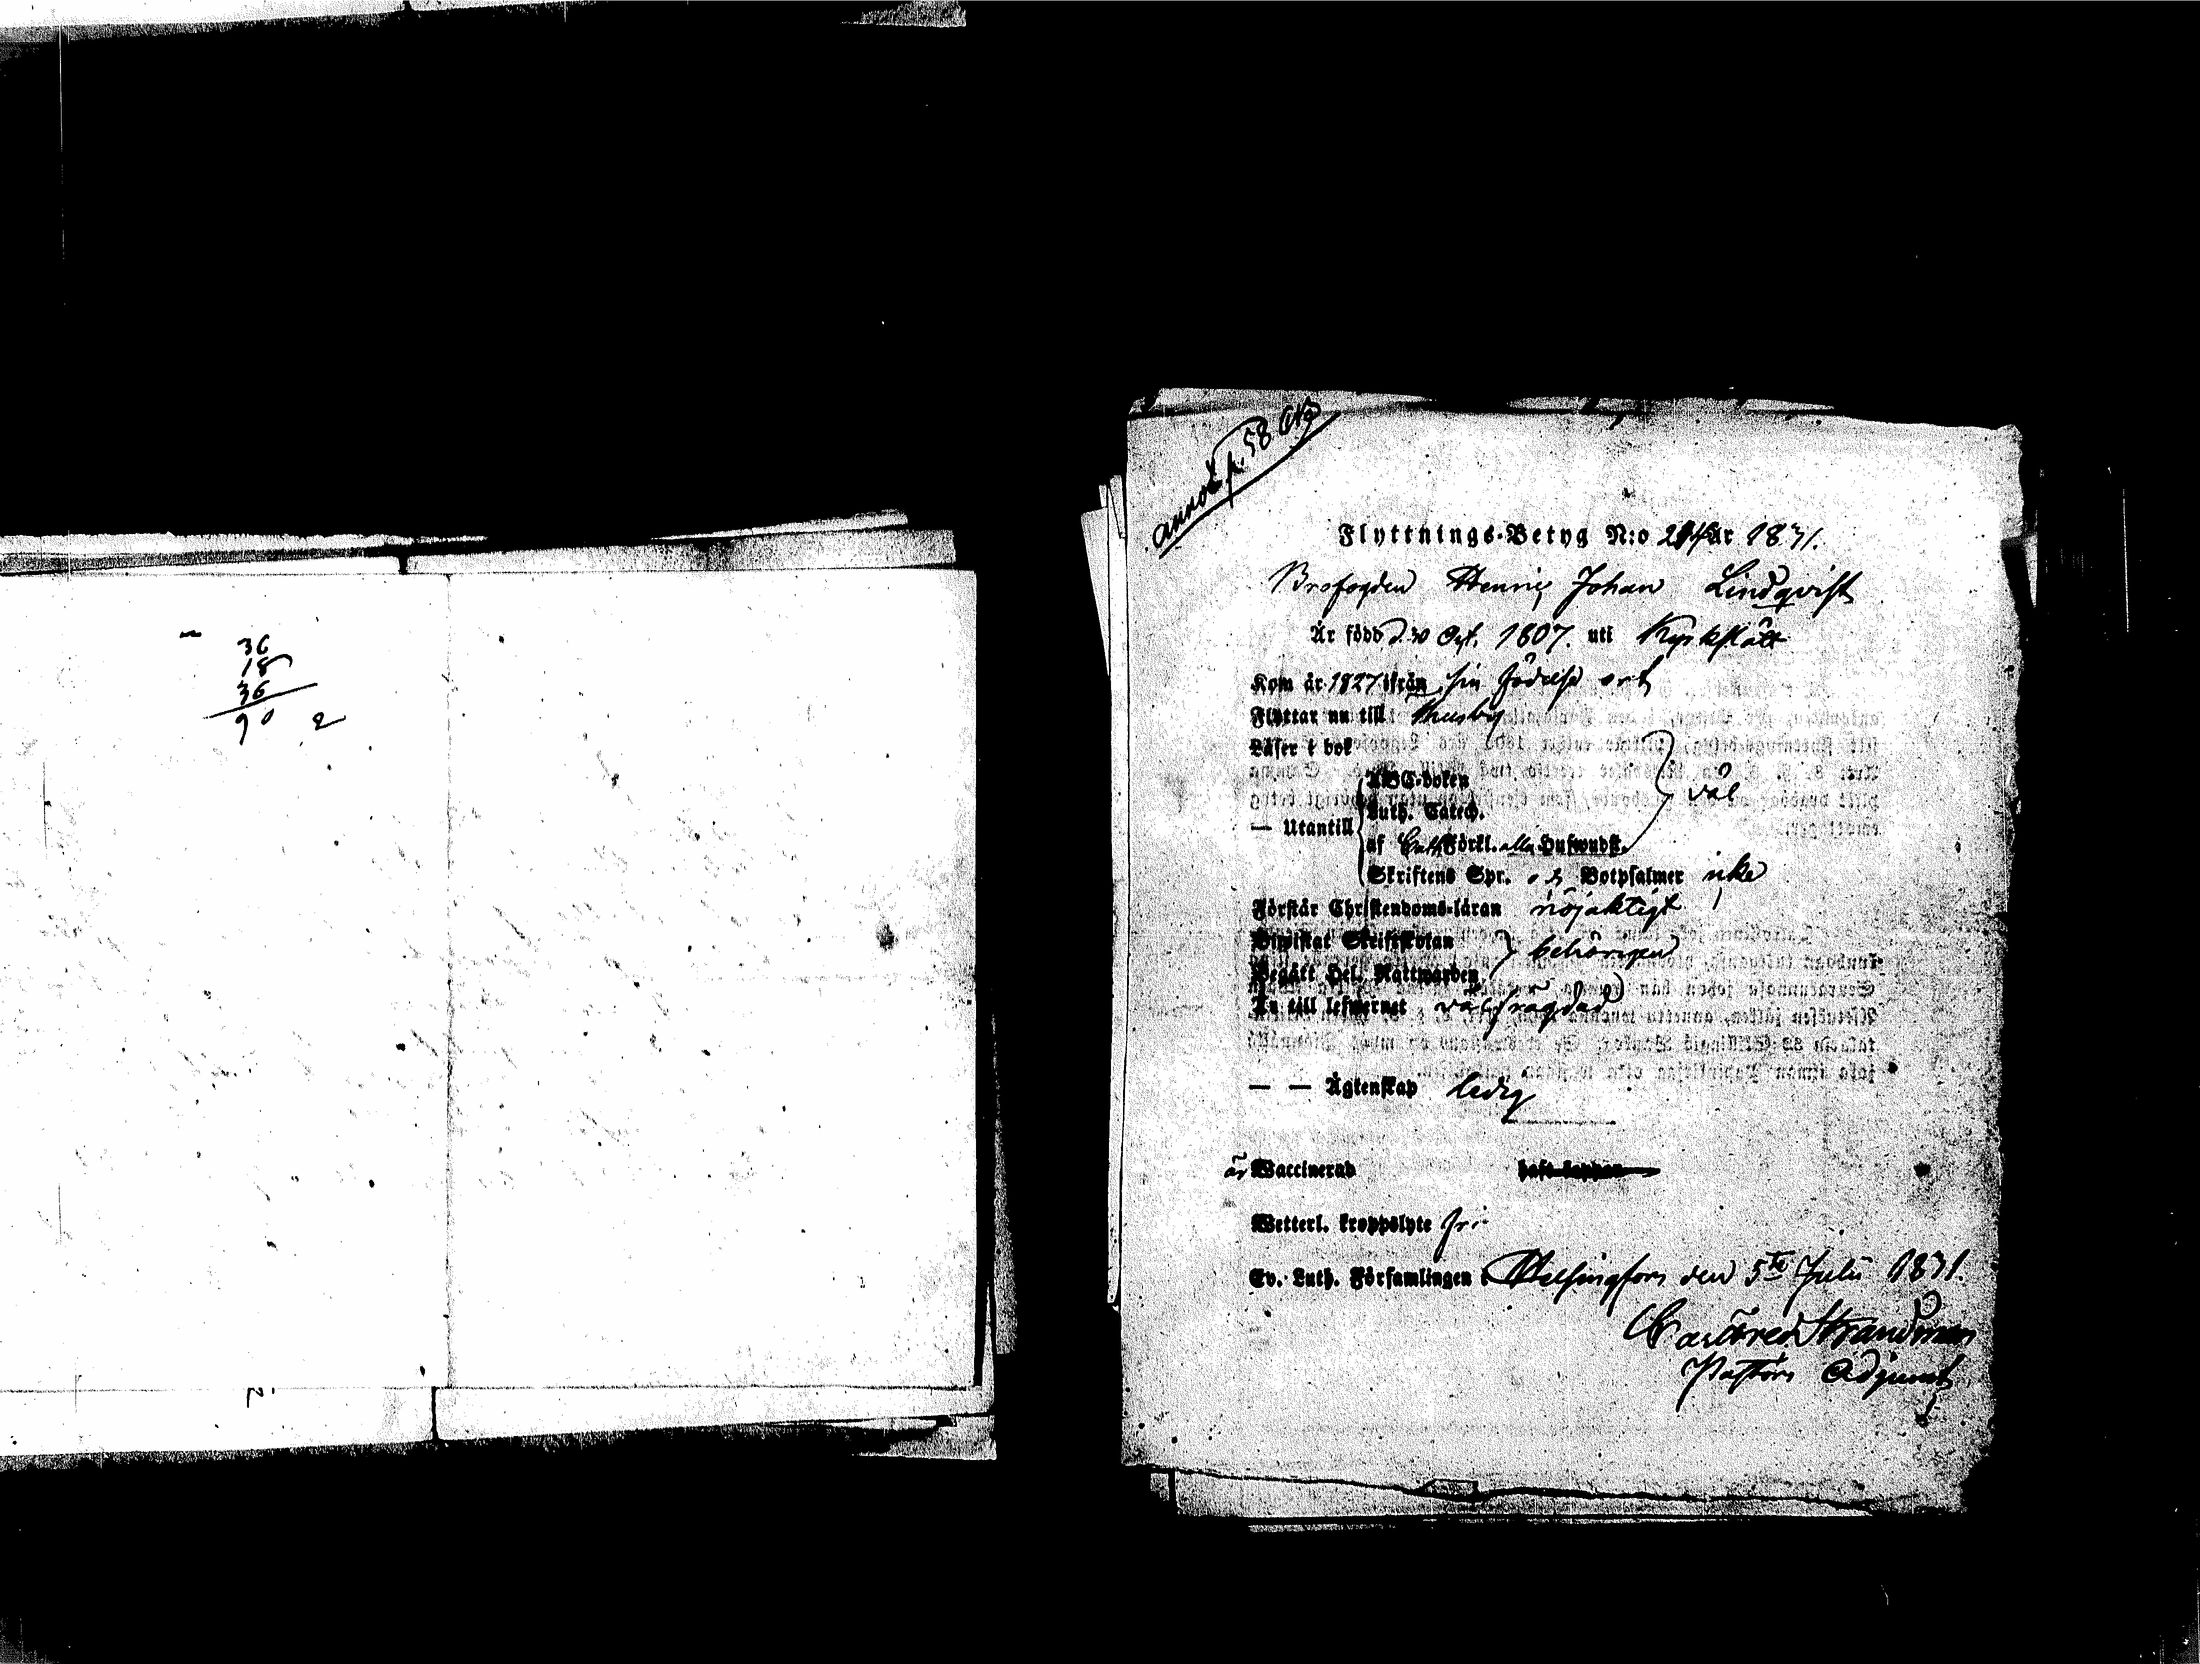 36
18
36
90 2
annot p. 58
Flyttnings-Betyg N:o År 1831.
Brofogden Henric Johan Lindqvist
Är född d. 30 1807. uti Kyrkslätt
Kom år 1827 ifrån sin födelse ort
Flyttar nu till Thusby
Läser i bok
ABC-boken
Luth. Catech. väl
— Utantill
af Förkl. alla Hufwudst.
Skriftens Spr. och Botpsalmer icke
Förstår Christendoms-läran nöjaktigt
Biwistat Skriftskolan
Begått Hel. Nattwarden behörigen
Än till lefwernet välfrägdad
— — Ägtenskap ledig
är Waccinerad haft koppor
Wetterl. kroppslyte fri
Ev. Luth. Församlingen i Helsingfors den 5te Julii 1831.
Strandman
Pastors Adjunct